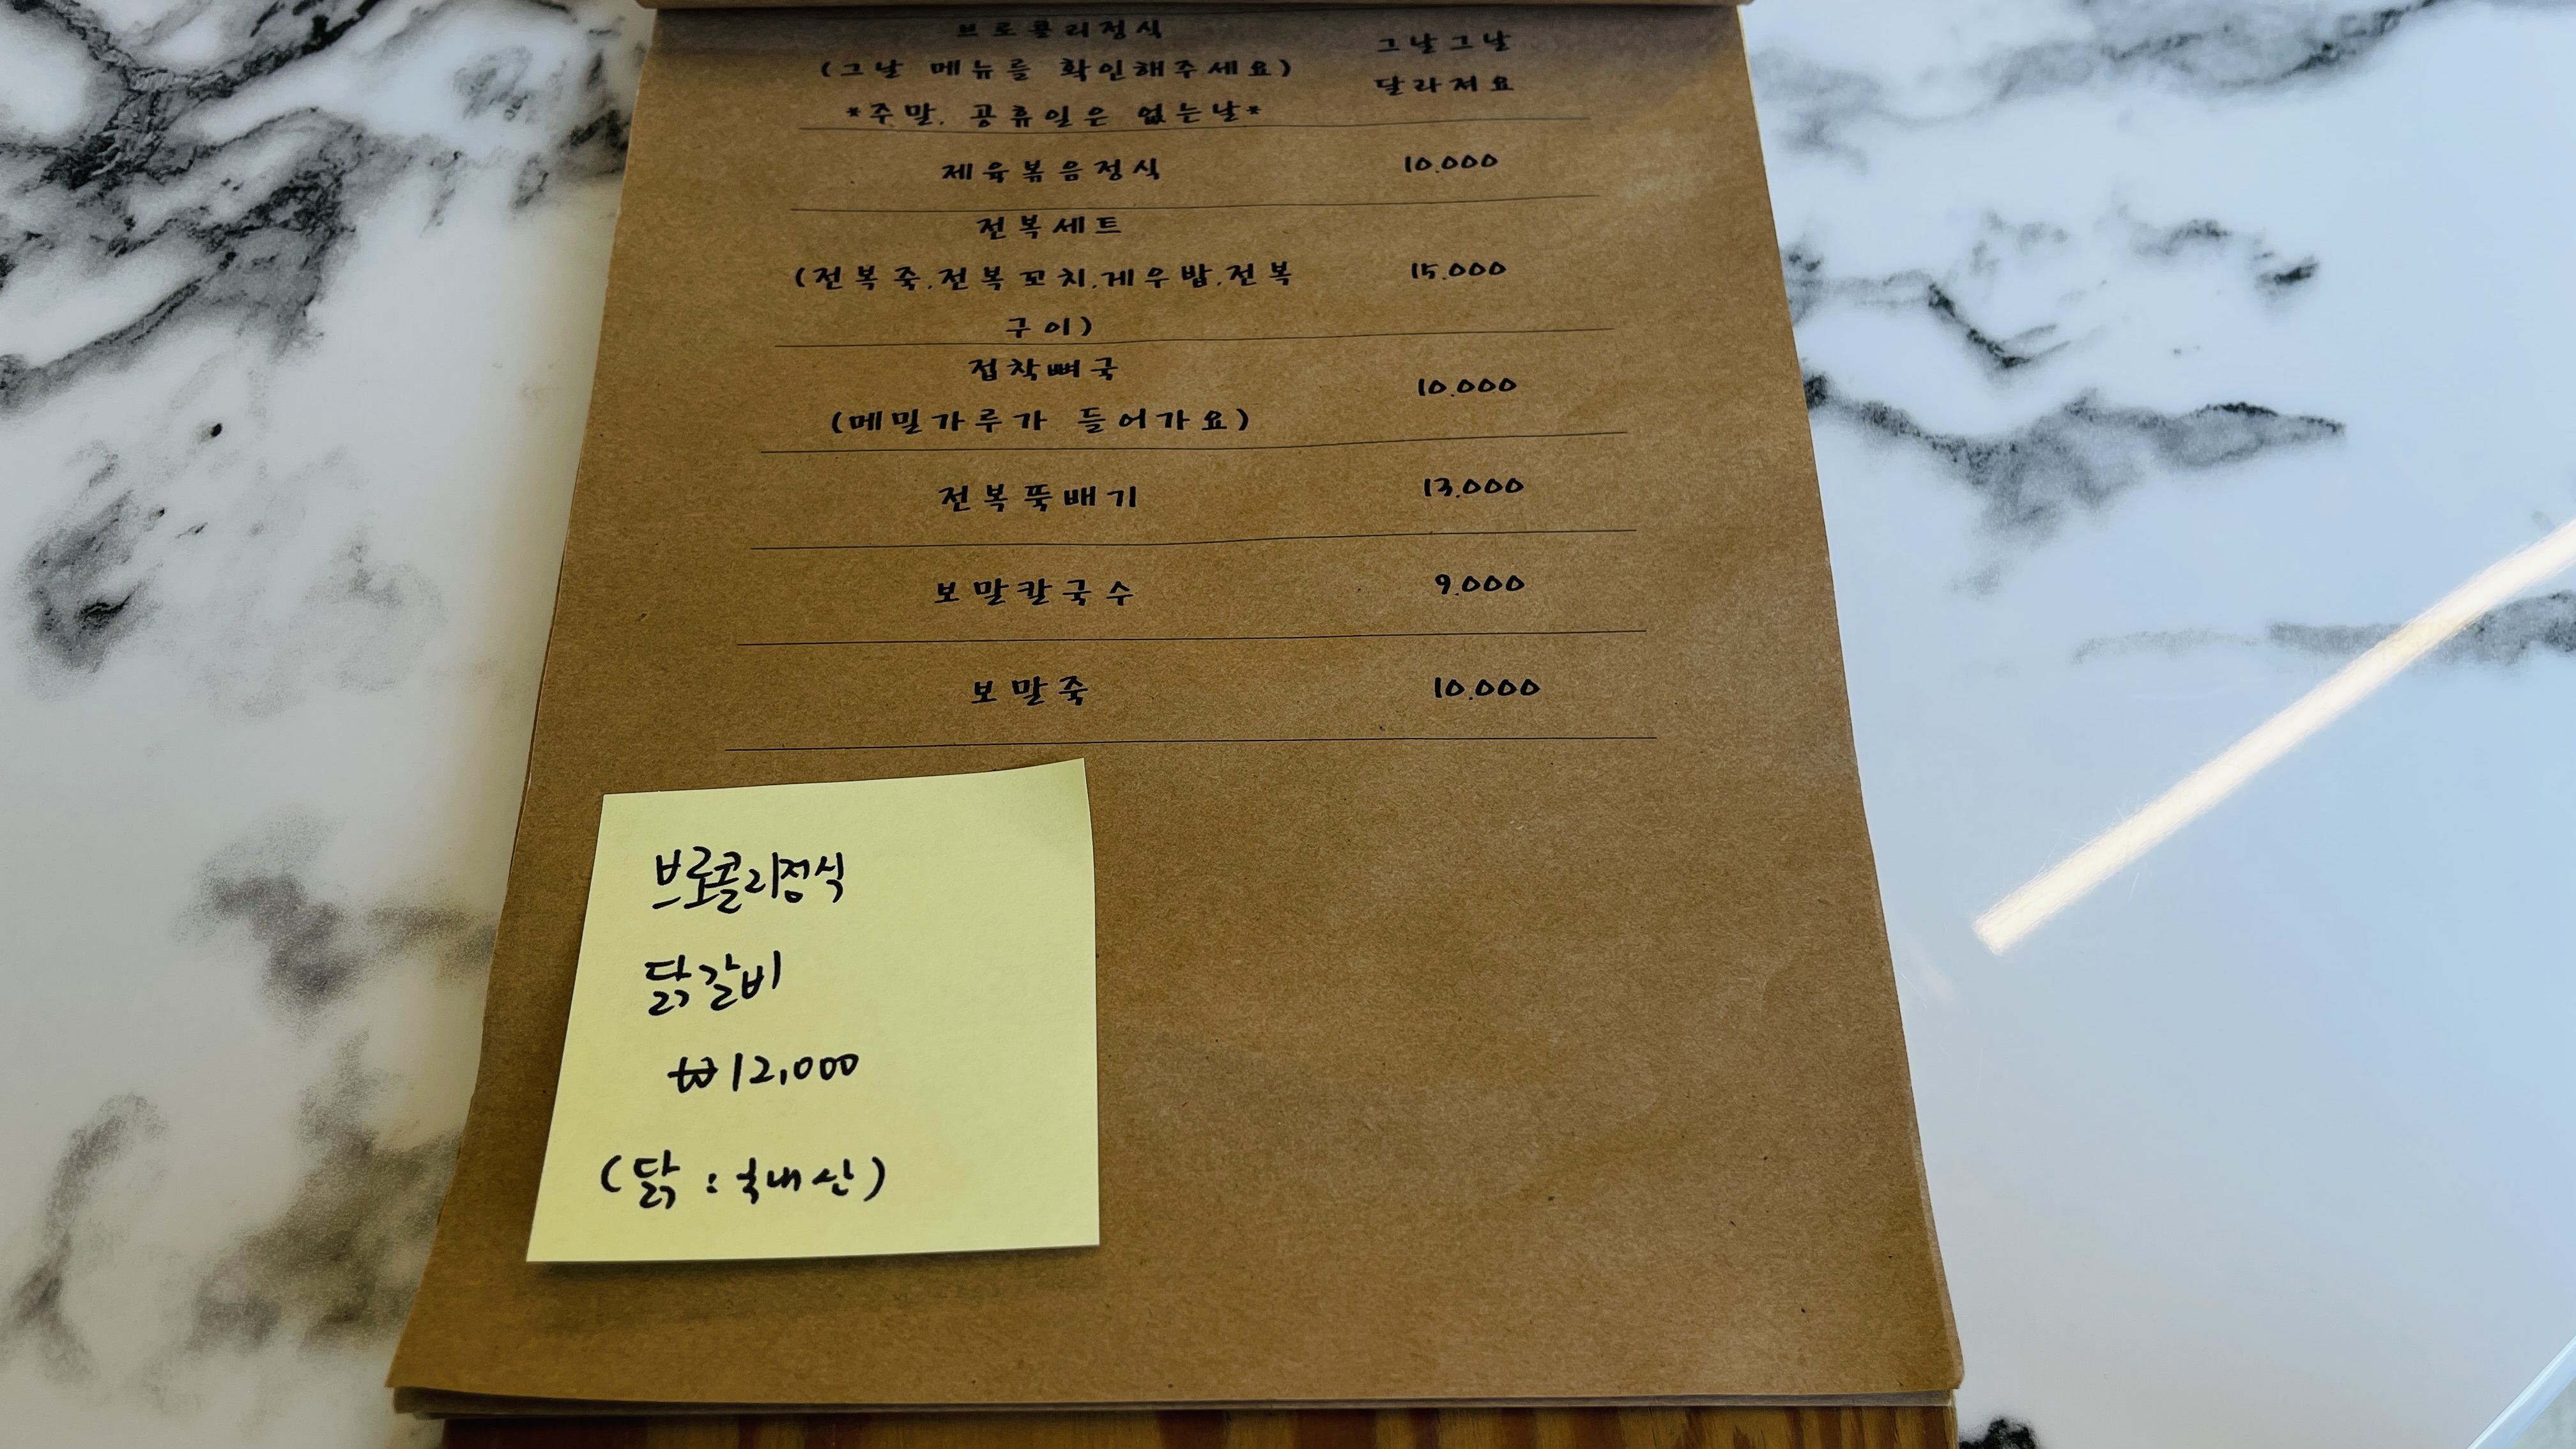 브로콜리정식
(그날 메뉴를 확인해주세요)
*주말, 공휴일은 없는날*
그날그날
달라져요
제육볶음정식 10.000
전복세트
(전복죽,전복꼬치,게우밥,전복
구이)
15.000
접착뼈국
(메밀가루가 들어가요)
10.000
전복뚝배기 13.000
보말칼국수 9.000
보말죽 10.000
브로콜리정식
닭갈비
₩12,000
(닭 : 국내산)